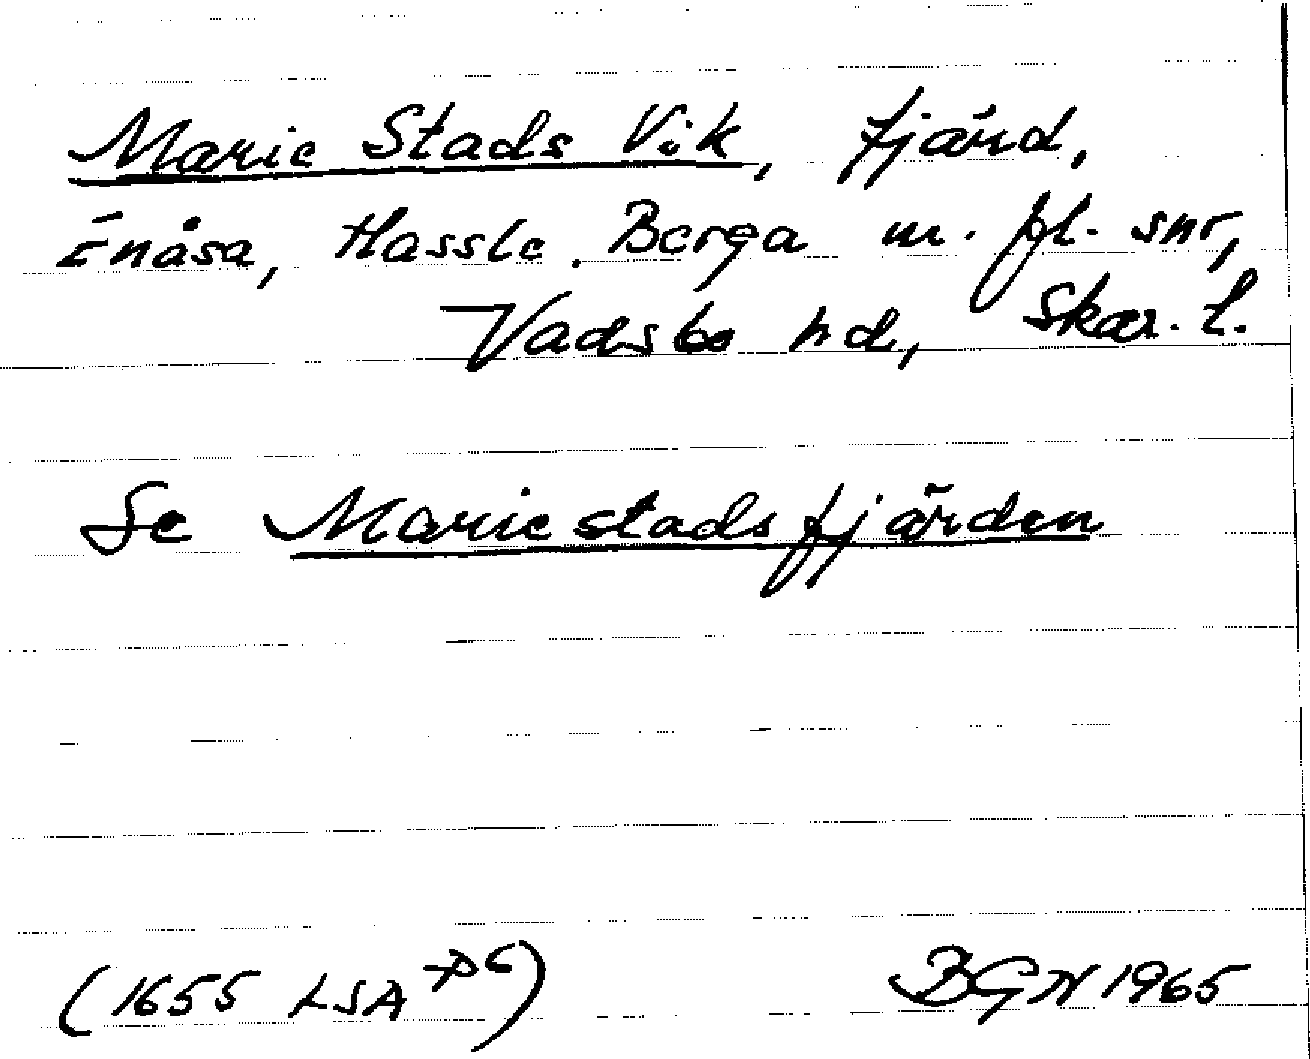 Marie Stads Vik, fjärd,
Enåsa, Hassle, Berga m. fl. snr,
Vadsbo hd, Skar. l.
Se Mariestadsfjärden
(1655 LSA
BGN 1965